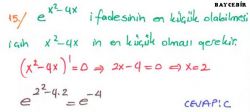 BAYCEBİR
15/ e^(x²-4x) ifadesinin en küçük olabilmesi
için x²-4x in en küçük olması gerekir.
(x²-4x)' = 0 ⇒ 2x-4=0 ⇒ x=2
e^(2²-4.2) = e^(-4)
CEVAP: C